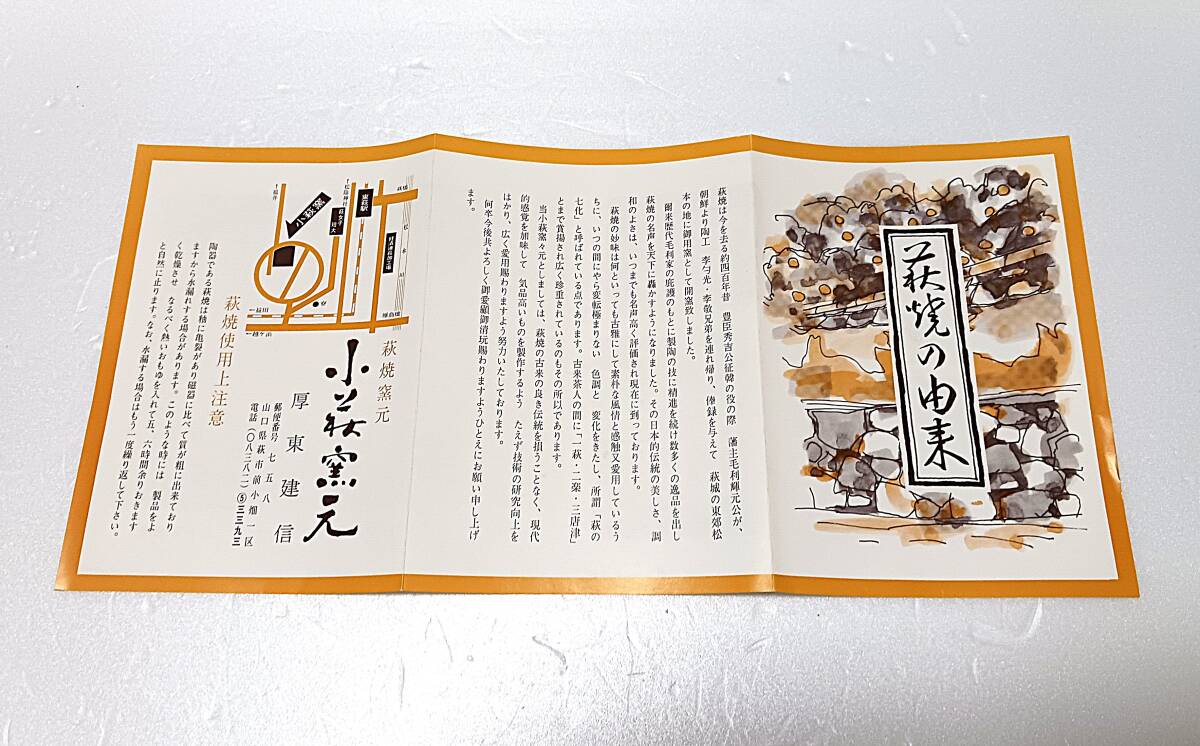 萩焼の由来
萩焼は今を去る約四百年昔 豊臣秀吉公征韓の役の際 藩主毛利輝元公が、
朝鮮より陶工 李勺光・李敬兄弟を連れ帰り、俸録を与えて 萩城の東郊松
本の地に御用窯として開窯致しました。
爾来歴代毛利家の庇護のもとに製陶の技に精進を続け数多くの逸品を出し
萩焼の名声を天下に轟かすようになりました。その日本的伝統の美しさ、調
和のよさは、いつまでも名声高く評価され現在に到っております。
萩焼の妙味は何といっても古雅にして素朴な風情と感触又愛用しているう
ちに、いつの間にやら変転極まりない 色調と 変化をきたし、所謂「萩の
七化」と呼ばれている点であります。古来茶人の間に「一萩・二楽・三唐津」
とまで賞揚され広く珍重されているのもその所以であります。
当小萩窯々元としましては、萩焼の古来の良き伝統を損うことなく、現代
的感覚を加味して 気品高いものを製作するよう たえず技術の研究向上を
はかり、広く愛用賜わりますよう努力いたしております。
何卒今後共よろしく御愛顧御清玩賜わりますようひとえにお願い申し上げ
ます。
萩焼窯元
小萩窯元
厚東建信
郵便番号 七五八
山口県萩市前小畑一区
電話(〇八三八二)⑤三三九三
小萩窯
東萩駅
萩女子短大
松本川
萩橋
↑松陰神社
←益田
←越ヶ浜
萩焼使用上注意
陶器である萩焼は釉に亀裂があり磁器に比べて質が粗に出来ており
ますから水漏れする場合があります。このような時には 製品をよ
く乾燥させ なるべく熱いおもゆを入れて五、六時間余りおきます
と自然に止ります。なお、水漏する場合はもう一度繰り返して下さい。